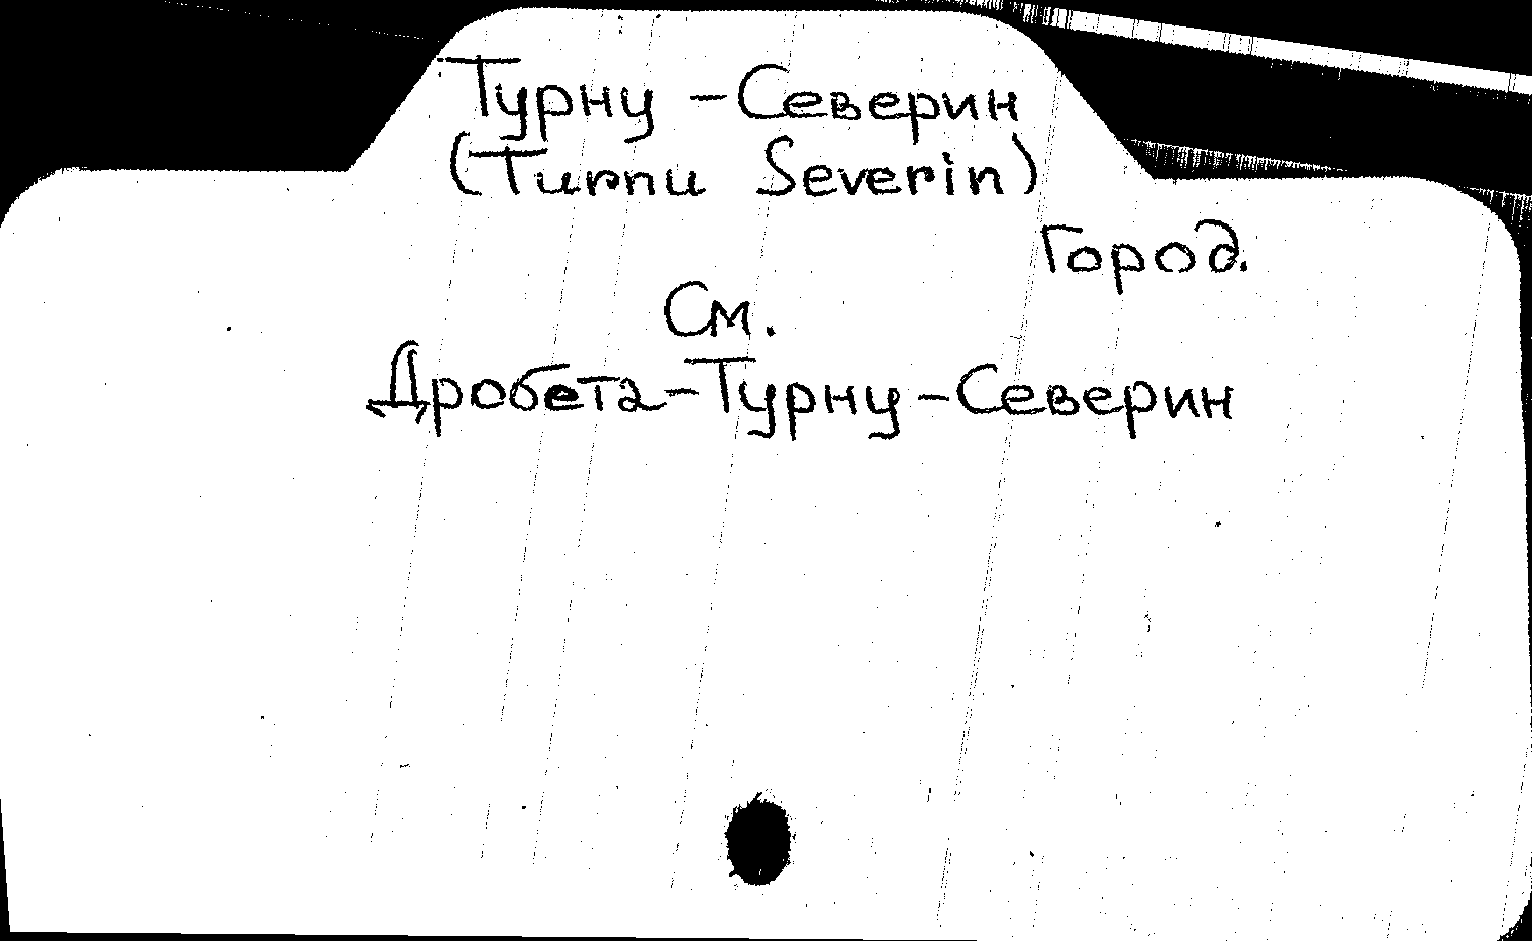 Турну-Северин
(Turnu Severin)
город.
См.
Дробета-Турну-Северин